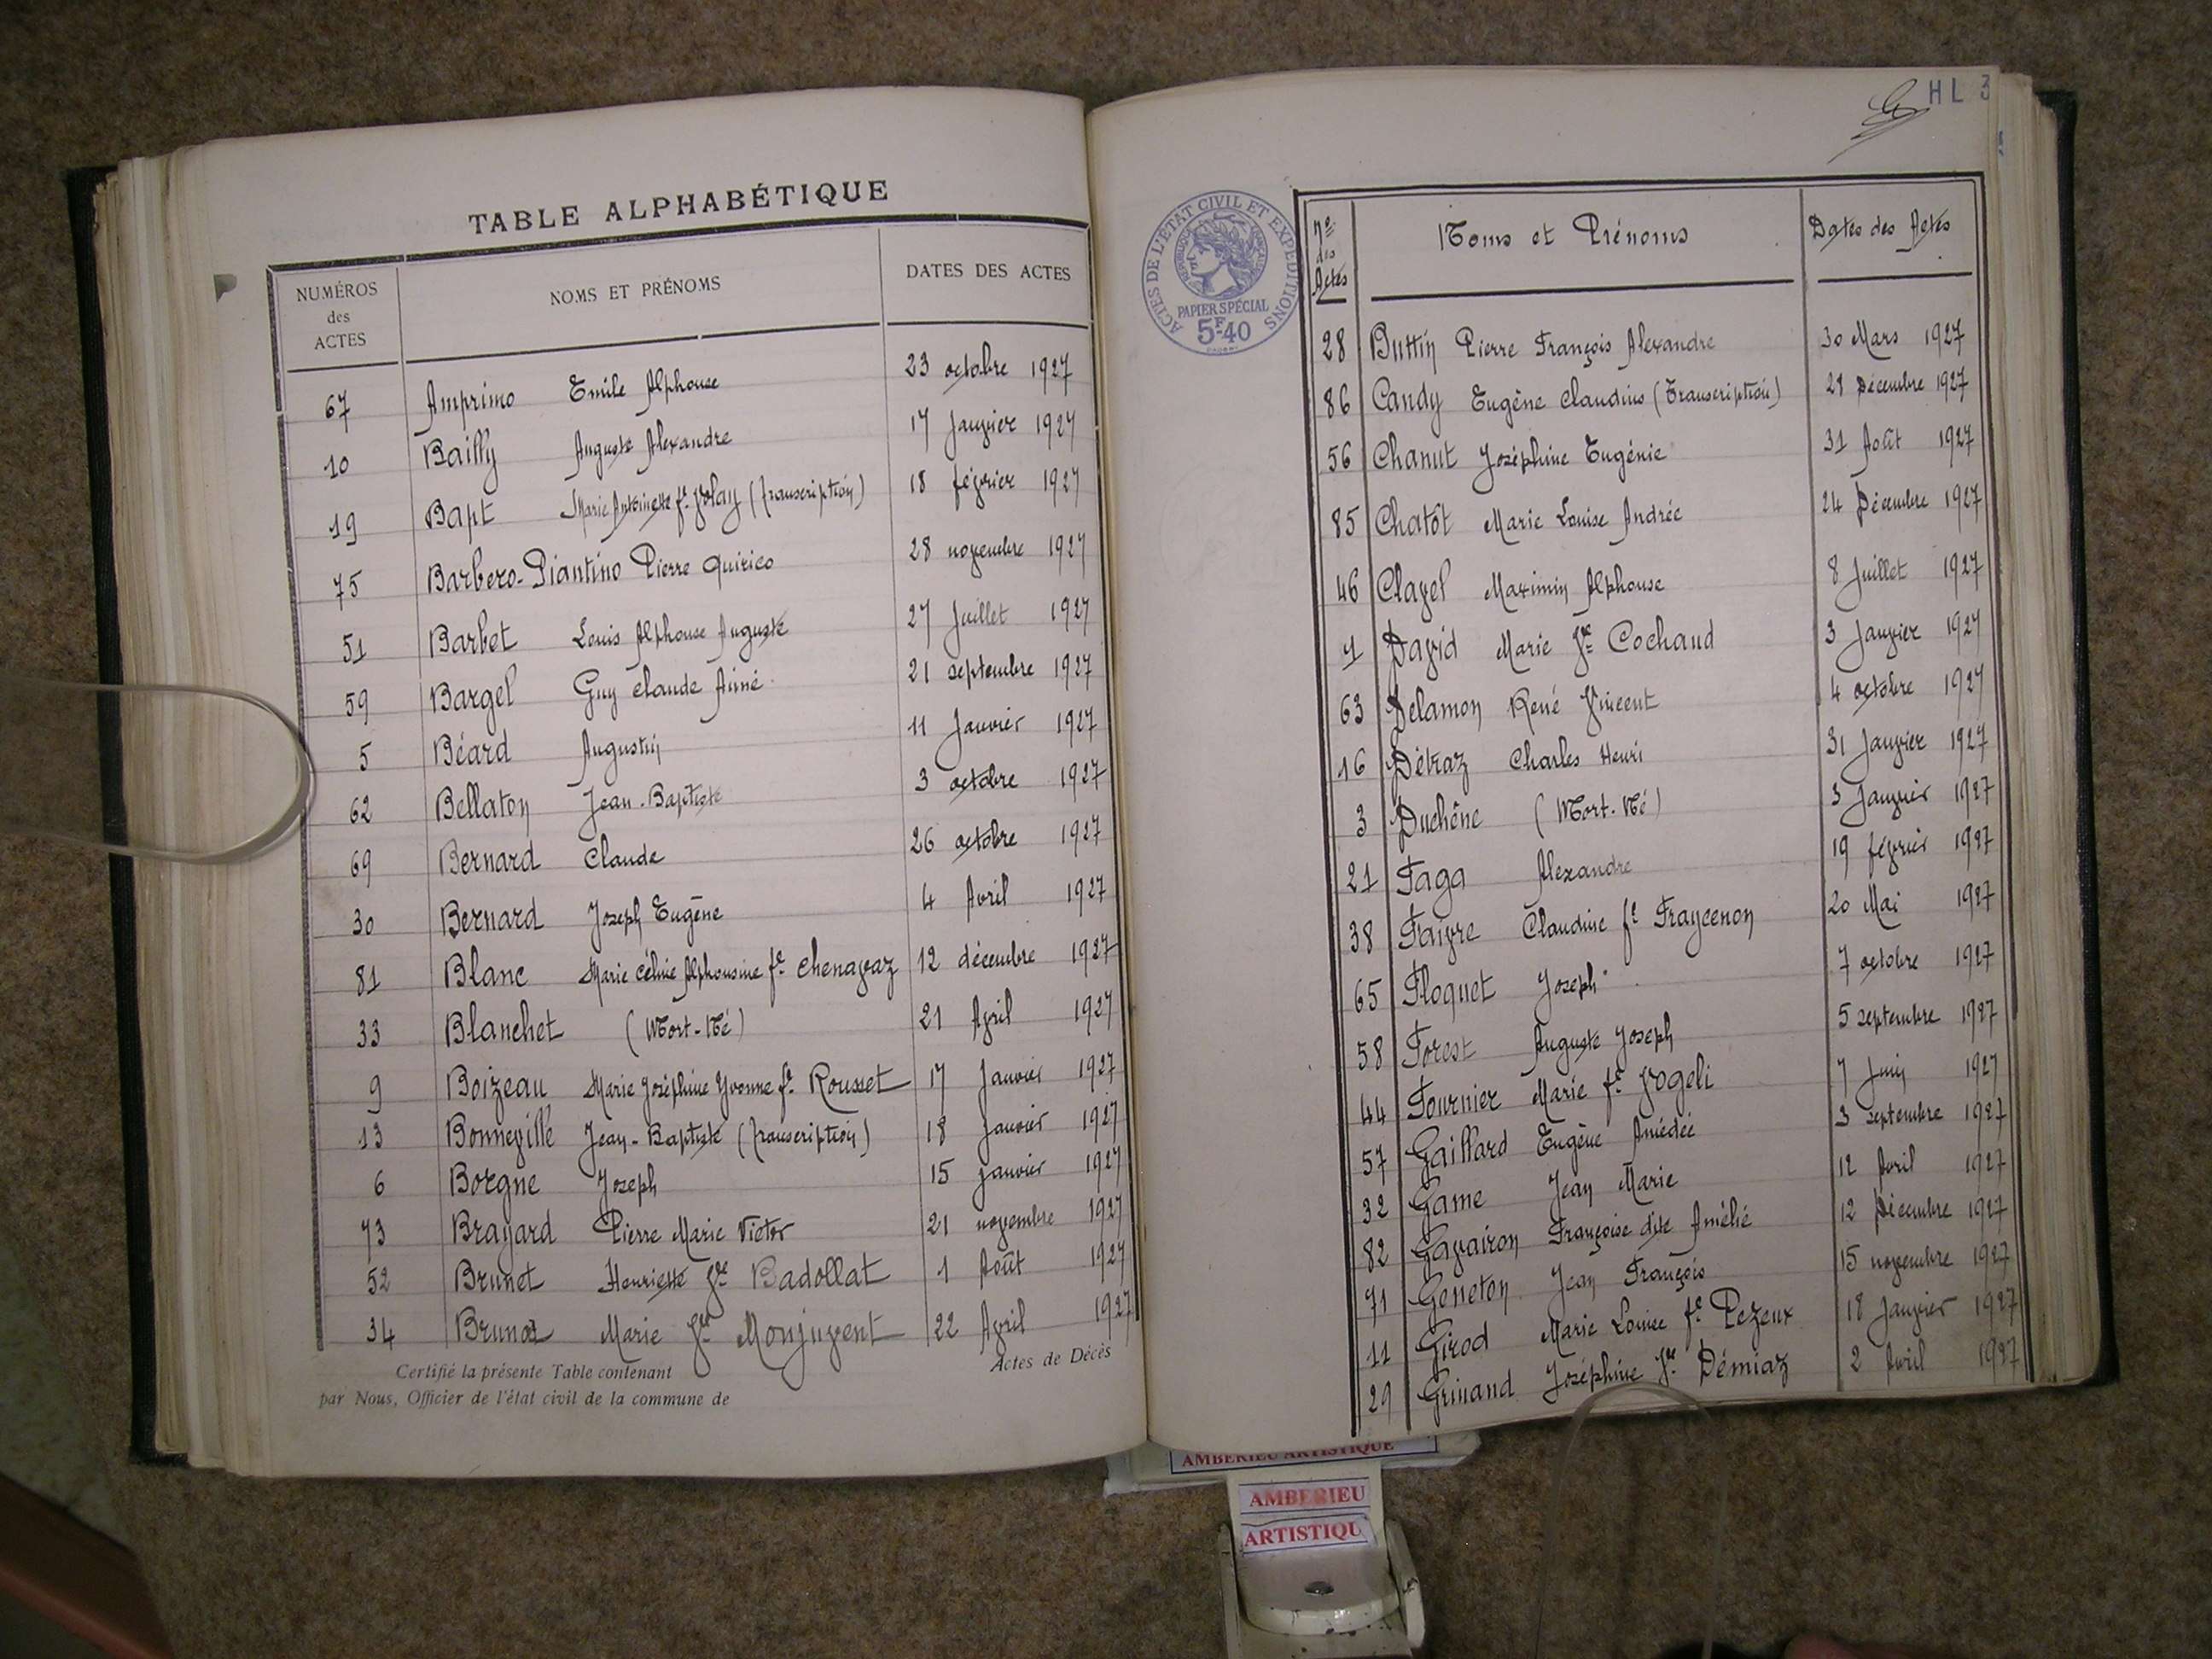 TABLE ALPHABÉTIQUE
NUMÉROS des ACTES NOMS ET PRÉNOMS DATES DES ACTES
67 Amprimo Emile Alphonse 23 octobre 1927
10 Bailly Auguste Alexandre 17 Janvier 1927
19 Bapt Marie Antoinette fe Volay (Transcription) 18 février 1927
75 Barbero-Piantino Pierre Quirico 28 novembre 1927
51 Barbet Louis Alphonse Auguste 27 Juillet 1927
59 Bargel Guy Claude Aimé 21 septembre 1927
5 Béard Augustin 11 Janvier 1927
62 Bellaton Jean-Baptiste 3 octobre 1927
69 Bernard Claude 26 octobre 1927
30 Bernard Joseph Eugène 4 Avril 1927
81 Blanc Marie Céline Alphonsine fe Chenavaz 12 décembre 1927
33 Blanchet (Mort-Né) 21 Avril 1927
9 Boizeau Marie Joséphine Yvonne fe Rousset 17 Janvier 1927
13 Bonneville Jean-Baptiste (Transcription) 18 Janvier 1927
6 Borgne Joseph 15 janvier 1927
73 Brayard Pierre Marie Victor 21 novembre 1927
52 Brunet Henriette Vve Badollat 1 Août 1927
34 Brunet Marie Vve Monjuvent 22 Avril 1927
Certifié la présente Table contenant Actes de Décès
par Nous, Officier de l'état civil de la commune de
HL 3
ACTES DE L'ÉTAT CIVIL ET EXPÉDITIONS
RÉPUBLIQUE FRANÇAISE
PAPIER SPÉCIAL
5F.40
Nos des Actes Noms et Prénoms Dates des Actes
28 Buttin Pierre François Alexandre 30 Mars 1927
86 Candy Eugène Claudius (Transcription) 29 Décembre 1927
56 Chanut Joséphine Eugénie 31 Août 1927
85 Chatôt Marie Louise Andrée 24 Décembre 1927
46 Clavel Maximin Alphonse 8 Juillet 1927
1 David Marie Vve Cochaud 3 Janvier 1927
63 Delamon René Vincent 4 octobre 1927
16 Détraz Charles Henri 31 Janvier 1927
3 Duchêne (Mort-Né) 3 Janvier 1927
21 Faga Alexandre 19 février 1927
38 Faivre Claudine fe Traycenon 20 Mai 1927
65 Floquet Joseph 7 octobre 1927
58 Forest Auguste Joseph 5 septembre 1927
44 Fournier Marie fe Vogeli 7 Juin 1927
57 Gaillard Eugène Amédée 3 septembre 1927
32 Game Jean Marie 12 Avril 1927
82 Gavairon Françoise dite Amélie 12 Décembre 1927
71 Geneton Jean François 15 novembre 1927
11 Girod Marie Louise fe Pezeux 18 Janvier 1927
29 Grinand Joséphine Vve Démiaz 2 Avril 1927
AMBERIEU ARTISTIQUE
AMBERIEU
ARTISTIQU